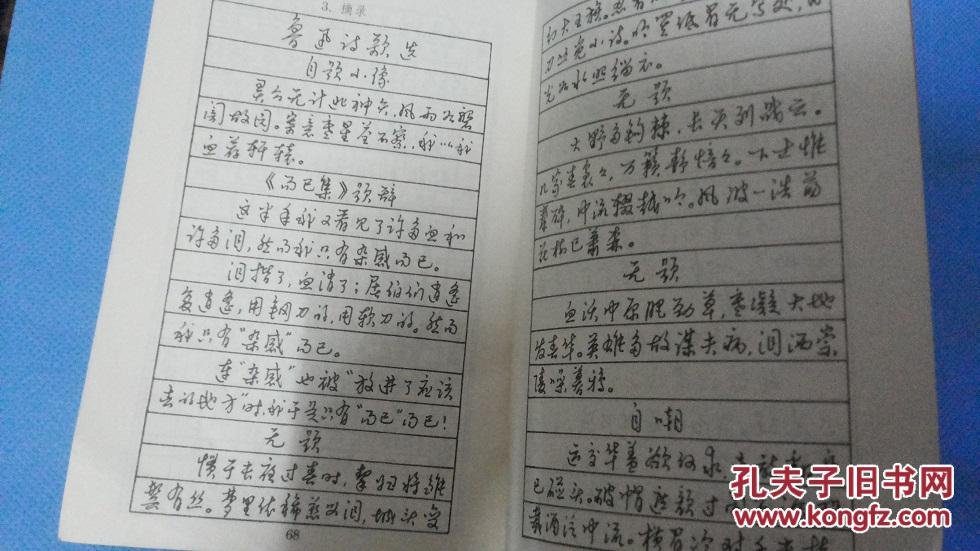 3. 摘录
鲁迅诗歌选
自题小像
灵台无计逃神矢，风雨如磐
闇故园。寄意寒星荃不察，我以我
血荐轩辕。
《而已集》题辞
这半年我又看见了许多血和
许多泪，然而我只有杂感而已。
泪揩了，血消了；屠伯们逍遥
复逍遥，用钢刀的，用软刀的。然而
我只有“杂感”而已。
连“杂感”也被“放进了应该
去的地方”时，我于是只有“而已”而已！
无题
惯于长夜过春时，挈妇将雏
鬓有丝。梦里依稀慈母泪，城头变
68
刃丛觅小诗。吟罢低眉无写处，月
光如水照缁衣。
无题
大野多钩棘，长天列战云。
几家春袅々，万籁静愔々。下土惟
秦醉，中流辍越吟。风波一浩荡
花树已萧森。
无题
血沃中原肥劲草，寒凝大地
发春华。英雄多故谋夫病，泪洒崇
陵噪暮鸦。
自嘲
运交华盖欲何求，
已碰头。破帽遮颜过
漏船载酒泛中流。横眉冷对千夫指
孔夫子旧书网
www.kongfz.com